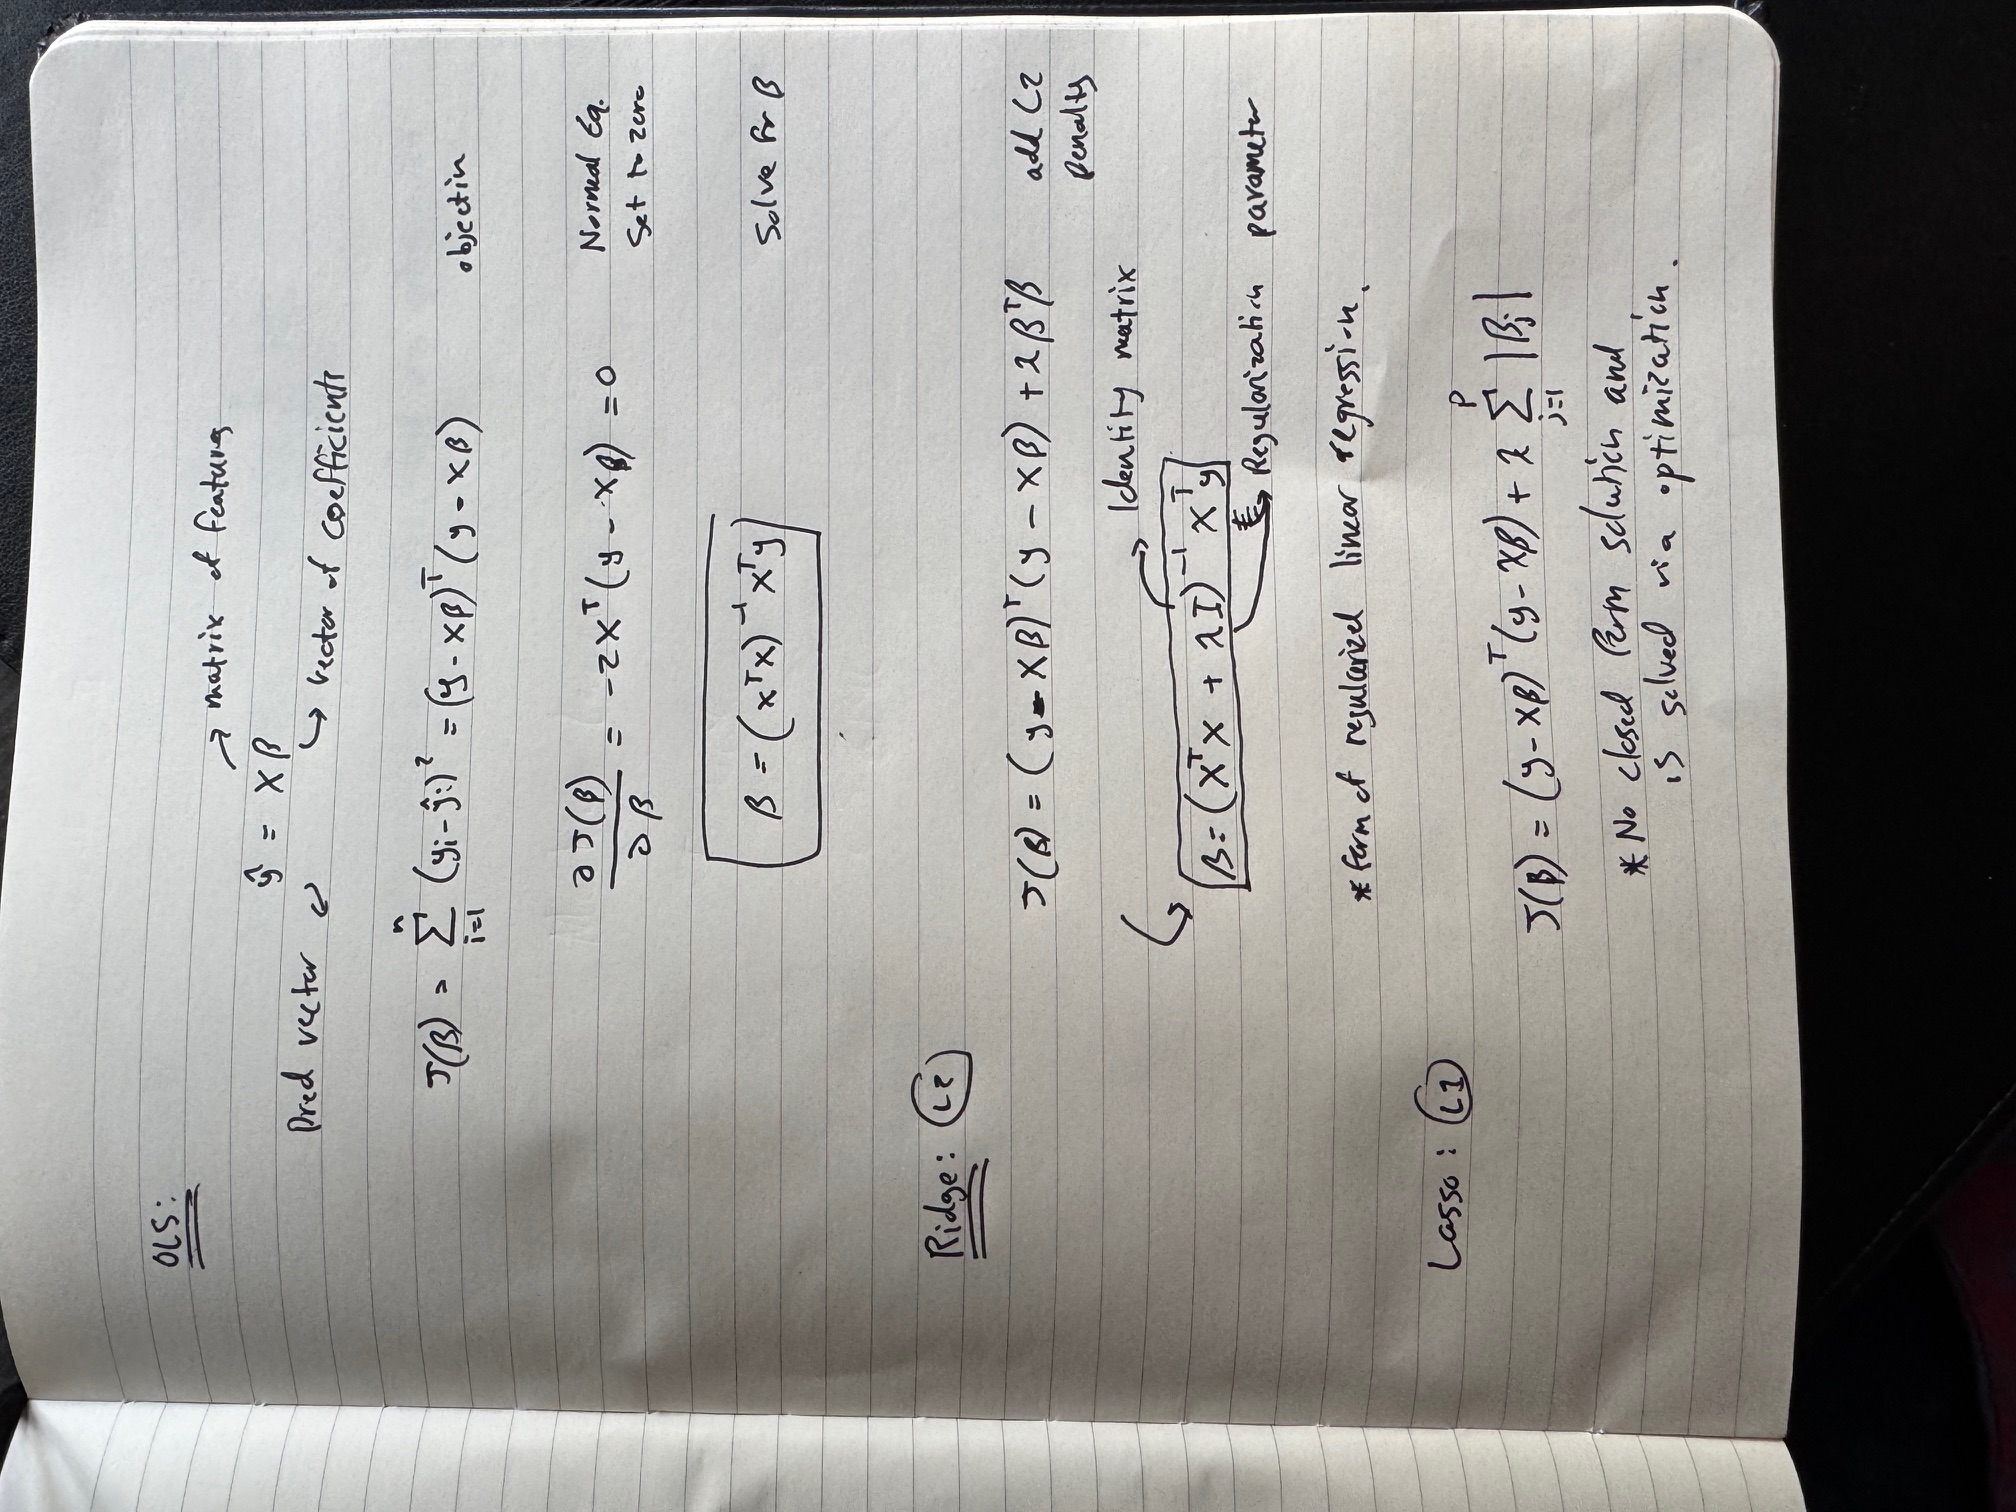 OLS:
→ matrix of features
ŷ = Xβ
Pred vector ↙
↳ vector of coefficients
J(β) = Σ_{i=1}^{n} (yᵢ - ŷᵢ)² = (y - Xβ)ᵀ(y - Xβ) objective
∂J(β)/∂β = -2Xᵀ(y - Xβ) = 0 Normal Eq.
Set to zero
β = (XᵀX)⁻¹Xᵀy Solve for β
Ridge: L2
J(β) = (y - Xβ)ᵀ(y - Xβ) + λβᵀβ add L2
penalty
→ Identity matrix
β = (XᵀX + λI)⁻¹Xᵀy
→ Regularization parameter
* form of regularized linear regression.
Lasso: L1
J(β) = (y - Xβ)ᵀ(y - Xβ) + λ Σ_{j=1}^{p} |βⱼ|
* No closed form solution and
is solved via optimization.